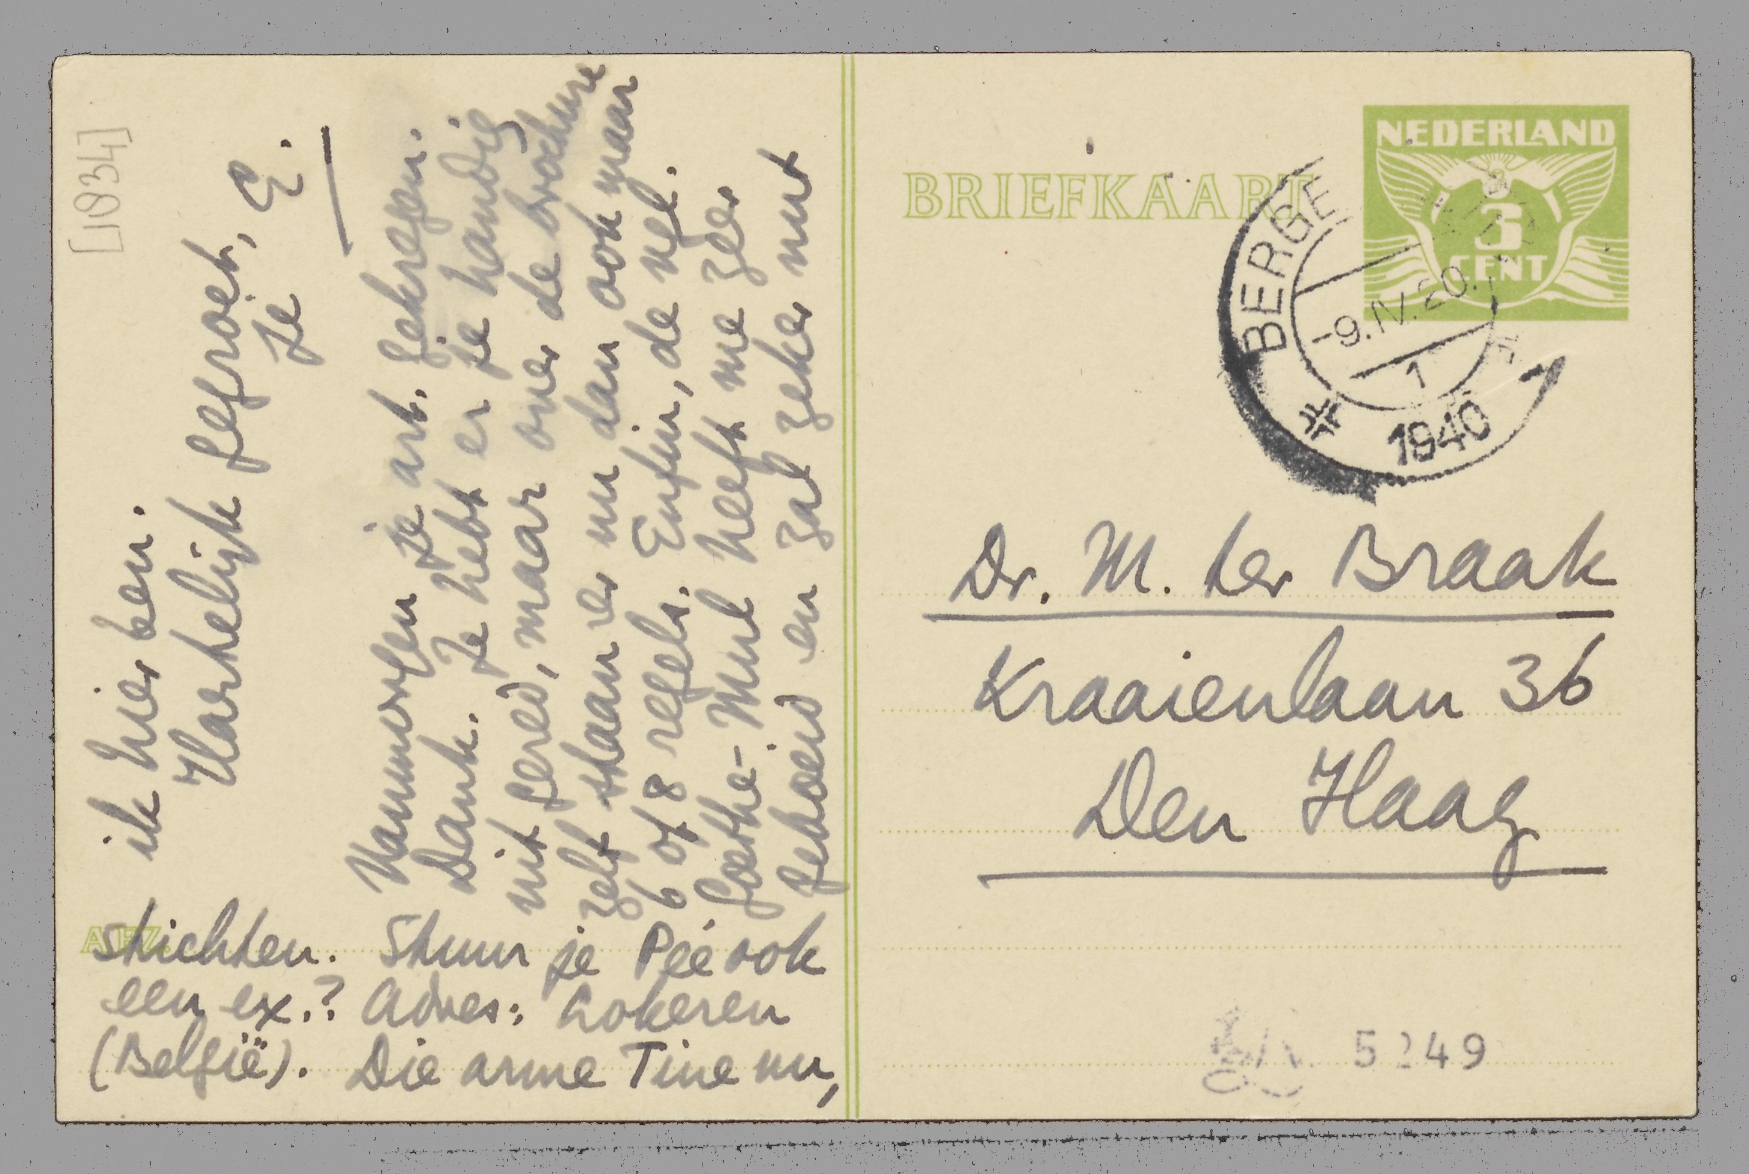 [1034]
Vanmorgen je art. gekregen.
Dank. Je hebt er je handig
uit gered, maar over de brochure
zelf staan er nu dan ook maar
6 of 8 regels. Enfin, de vel.
Goethe-Mul heeft me zeer
geboeid en zal zeker nut
stichten. Stuur je Pée ook
een ex.? Adres: Lokeren
(België). Die arme Tine nu,
ik hier ben.
Hartelijk gegroet,
je E.
BRIEFKAART
NEDERLAND
3
CENT
BERGE
-9.IV.20.
1
1940
Dr. M. ter Braak
Kraaienlaan 36
Den Haag
AFZ.
5249